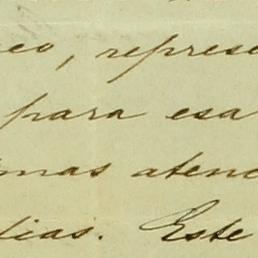 eo, represe
para esa
mas atenc
dias. Este